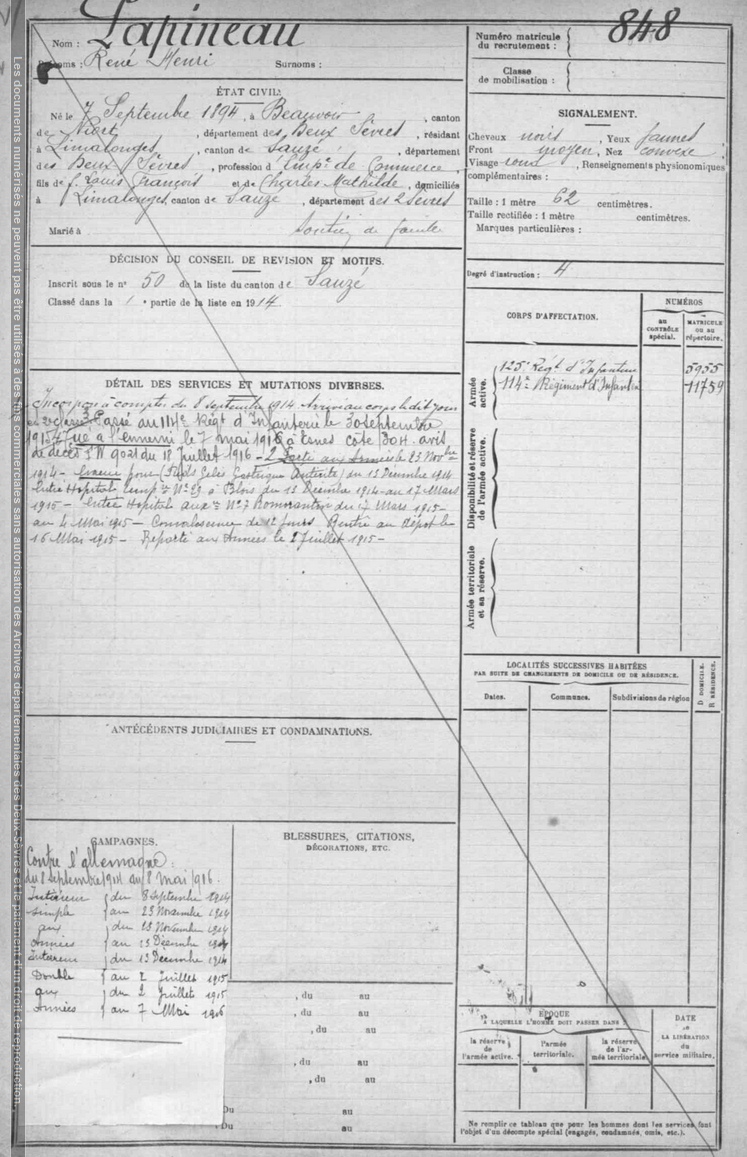 Les documents numérisés ne peuvent pas être utilisés à des fins commerciales sans autorisation des Archives départementales des Deux-Sèvres et le paiement d'un droit de reproduction.
Nom : Lapineau
Prénoms : René Henri Surnoms :
ÉTAT CIVIL
Né le 7 Septembre 1894, à Beauvoir, canton
de Niort, département des Deux Sèvres, résidant
à Limalonges, canton de Sauzé, département
des Deux Sèvres, profession d'Empé de Commerce,
fils de f. Louis François et de Charles Mathilde, domiciliés
à Limalonges, canton de Sauzé, département des 2 Sèvres
Marié à Soutien de famille
DÉCISION DU CONSEIL DE REVISION ET MOTIFS.
Inscrit sous le n° 50 de la liste du canton de Sauzé
Classé dans la 1e partie de la liste en 1914
DÉTAIL DES SERVICES ET MUTATIONS DIVERSES.
Incorporé à compter du 8 septembre 1914 Arrivé au corps le dit jour
Passé au 114e Régt d'Infanterie le 30 septembre
1915 Tué à l'ennemi le 7 mai 1916 à Esnes côte 304. avis
de décès du 18 juillet 1916 - Parti aux Armées le 23 Novbre
1914 - Evacué pour (Pieds Gelés Gastrique Entérite) du 13 Décembre 1914
Entré Hopital temp. à Blois du 13 Décembre 1914 au 17 Mars
1915 - Entré Hopital auxre N° 7 Romorantin du 17 Mars 1915 -
au 4 Mai 1915 - Convalescence de 12 jours Rentré au dépôt le
16 Mai 1915 - Reparti aux Armées le 2 juillet 1915 -
ANTÉCÉDENTS JUDICIAIRES ET CONDAMNATIONS.
CAMPAGNES.
Contre l'allemagne :
du 8 septembre 1914 au 8 mai 1916.
Intérieur du 8 Septembre 1914
simple au 23 Novembre 1914
aux du 23 Novembre 1914
Armées au 13 Décembre 1914
Intérieur du 13 Décembre 1914
Double au 2 Juillet 1915
aux du 2 Juillet 1915
Armées au 7 Mai 1916
BLESSURES, CITATIONS,
DÉCORATIONS, ETC.
, du au
, du au
, du au
, du au
, du au
Du au
Du au
Numéro matricule
du recrutement : 848
Classe
de mobilisation :
SIGNALEMENT.
Cheveux noirs, Yeux jaunes
Front moyen, Nez convexe
Visage rond, Renseignements physionomiques
complémentaires :
Taille : 1 mètre 62 centimètres.
Taille rectifiée : 1 mètre centimètres.
Marques particulières :
Degré d'instruction : 4
CORPS D'AFFECTATION.
NUMÉROS
au
CONTRÔLE
spécial.
MATRICULE
ou au
répertoire.
Armée
active.
125e Régt d'Infanterie 5955
114e Régiment d'Infanterie 11759
Disponibilité et réserve
de l'armée active.
Armée territoriale
et sa réserve.
LOCALITÉS SUCCESSIVES HABITÉES
PAR SUITE DE CHANGEMENTS DE DOMICILE OU DE RÉSIDENCE.
Dates.
Communes.
Subdivisions de région
D DOMICILE.
R RÉSIDENCE.
ÉPOQUE
À LAQUELLE L'HOMME DOIT PASSER DANS
la réserve
de
l'armée active.
l'armée
territoriale.
la réserve
de l'ar-
mée territoriale
DATE
de
LA LIBÉRATION
du
service militaire.
Ne remplir ce tableau que pour les hommes dont les services font
l'objet d'un décompte spécial (engagés, condamnés, omis, etc.).